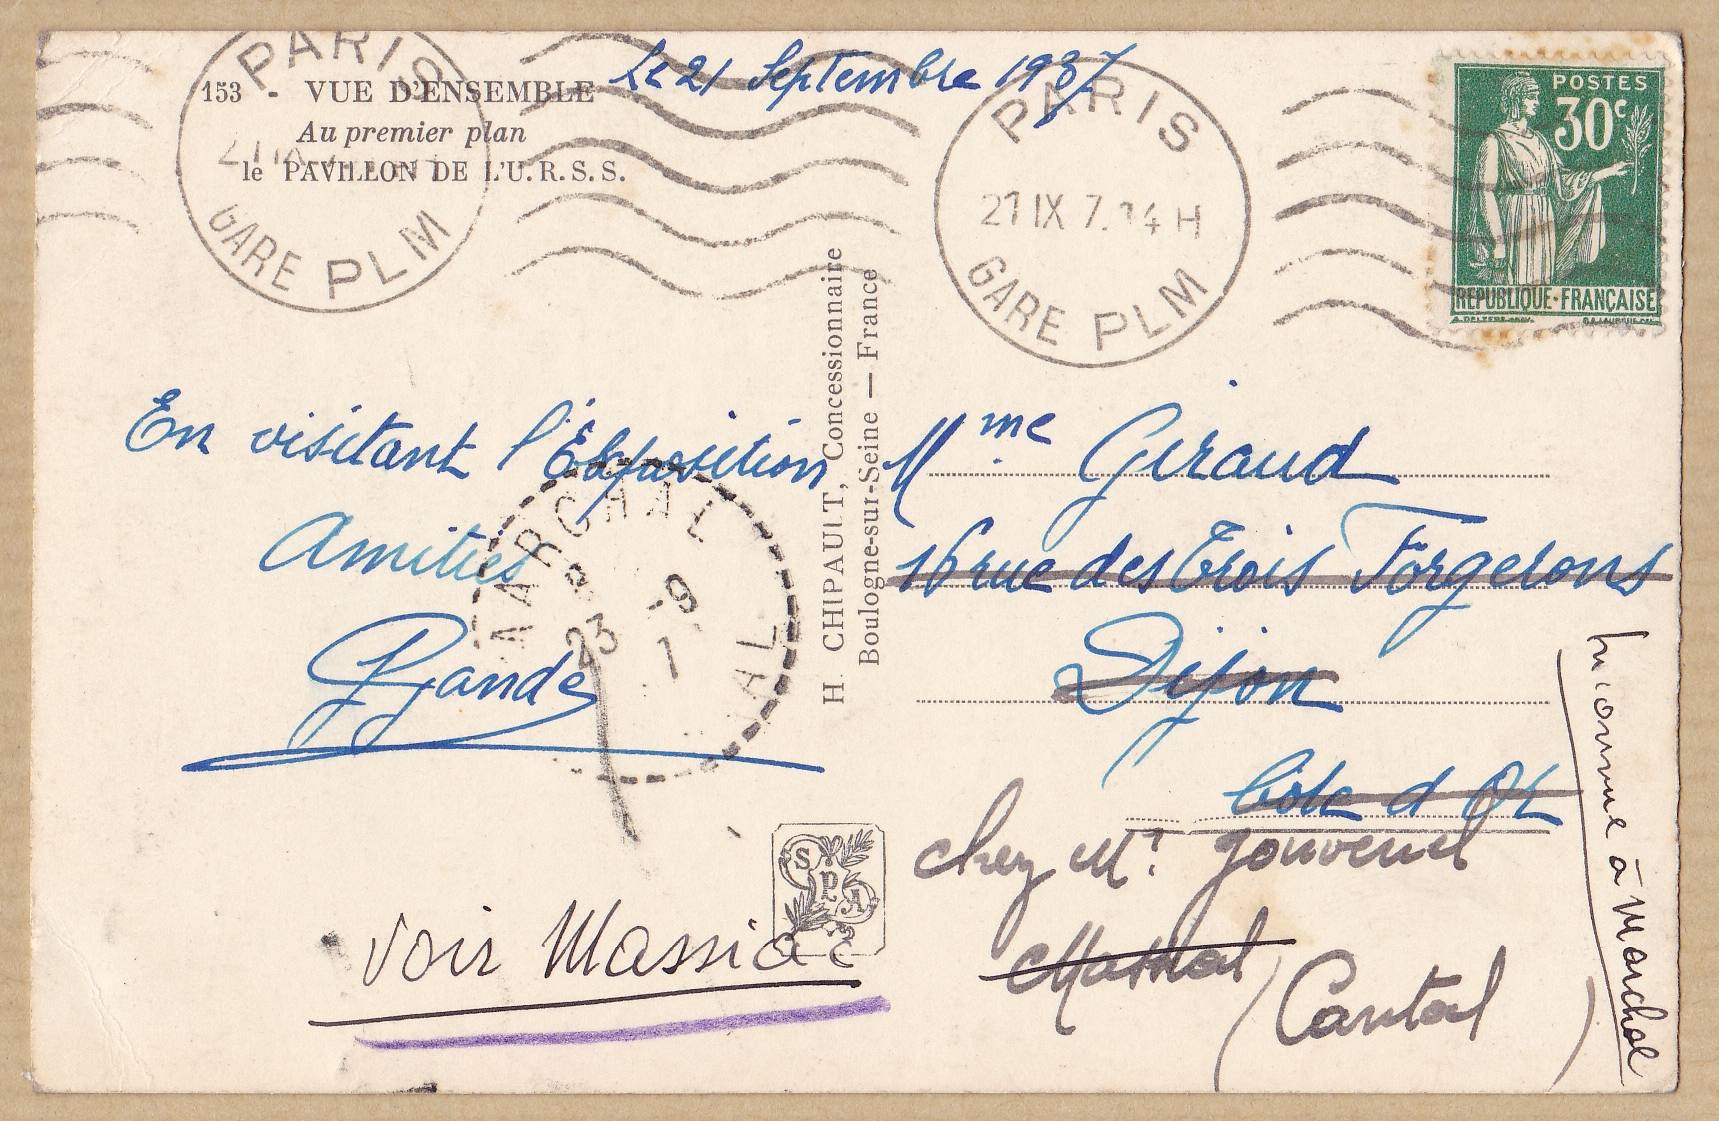 153 - VUE D'ENSEMBLE
Au premier plan
le PAVILLON DE L'U.R.S.S.
Le 21 Septembre 1937
PARIS
GARE PLM
PARIS
21 IX 7. 14 H
GARE PLM
POSTES
30c
REPUBLIQUE·FRANÇAISE
En visitant l'Exposition
Amitiés
Gande
MARCHAL
23 -9
AL
H. CHIPAULT, Concessionnaire
Boulogne-sur-Seine — France
Mme Giraud
16 rue des Trois Forgerons
Dijon
Côte d Or
chez Mr Jouvenel
Marchal (Cantal)
Inconnue à Marchal
voir Massiac
SPA